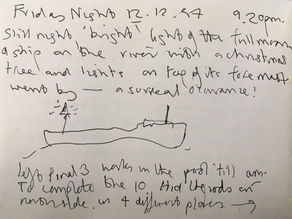 Friday Night 12.12.97 9.20pm.
Still night 'bright' light of the full moon
a ship on the river with a christmas
tree and lights on top of its fore mast
went by — a surreal occurance!
left final 3 works in the pool till am.
To complete the 10. Hid the rods on
in 4 different places →